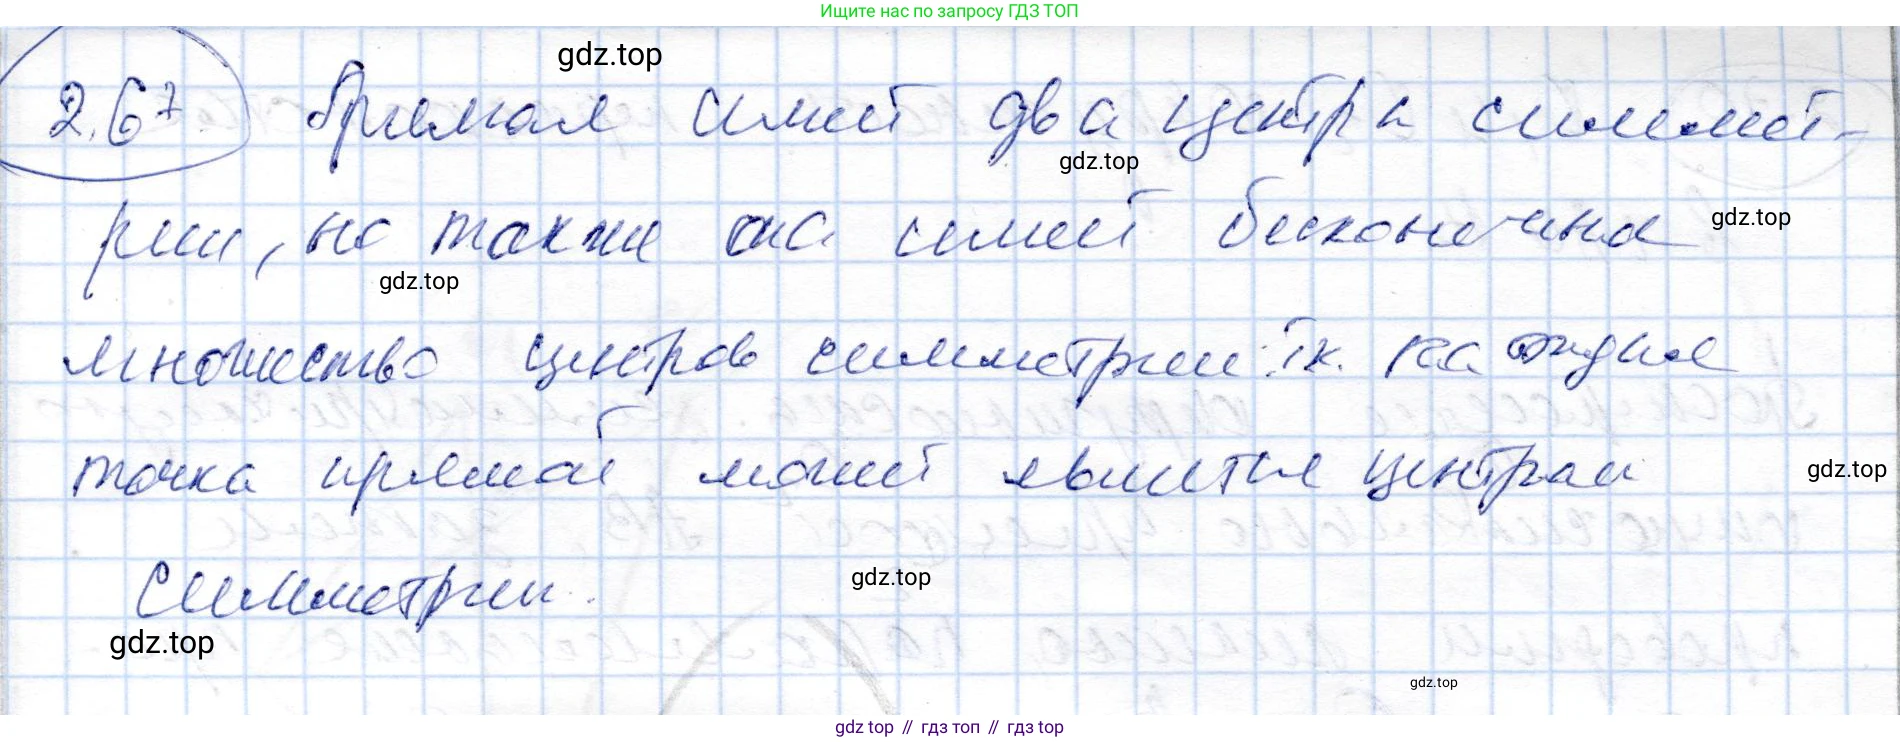 Ищите нас по запросу ГДЗ ТОП
gdz.top
2.67 Прямая имеет два центра симмет-
gdz.top
рии, но также она имеет бесконечное
gdz.top
gdz.top
множество центров симметрии: т.к. каждая
точка прямой может явится центром
gdz.top
симметрии.
gdz.top
gdz.top
gdz.top
gdz.top // гдз топ // гдз top